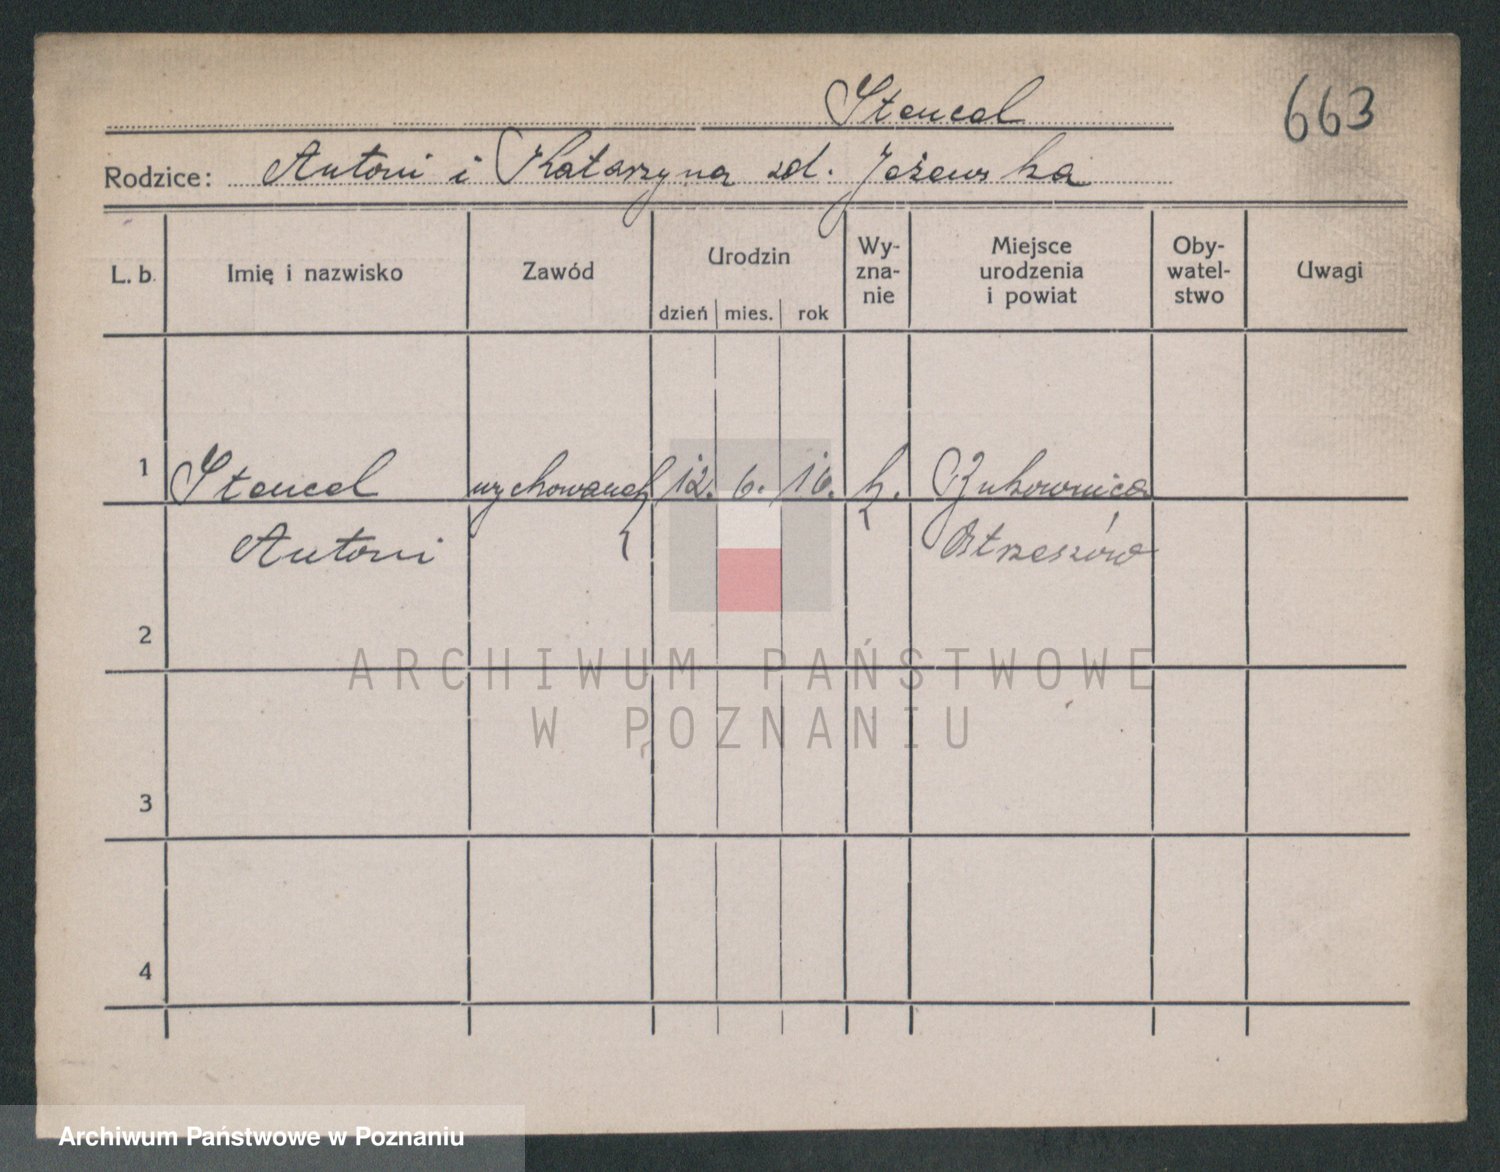 Stencel
663
Rodzice: Antoni i Katarzyna zd. Jeżewska
L. b. Imię i nazwisko Zawód Urodzin dzień mies. rok Wy-zna-nie Miejsce urodzenia i powiat Oby-watel-stwo Uwagi
1 Stencel wychowanek 12. 6. 16. k. Bukownica
Antoni Ostrzeszów
2
ARCHIWUM PAŃSTWOWE
W POZNANIU
3
4
Archiwum Państwowe w Poznaniu